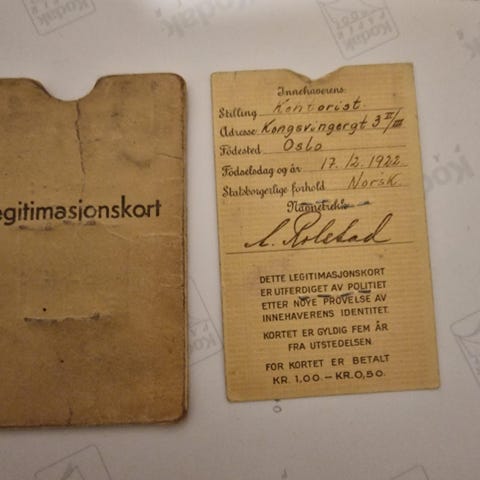 egitimasjonskort
Innehaverens:
Stilling Kontorist.
Adresse Kongsvingergt 3 II/III
Fødested Oslo
Fødselsdag og år 17.12.1922
Statsborgerlige forhold Norsk
Navnetrekk:
Rolstad
DETTE LEGITIMASJONSKORT
ER UTFERDIGET AV POLITIET
ETTER NØYE PRØVELSE AV
INNEHAVERENS IDENTITET.
KORTET ER GYLDIG FEM ÅR
FRA UTSTEDELSEN.
FOR KORTET ER BETALT
KR. 1,00.—KR.0,50.
Kodak